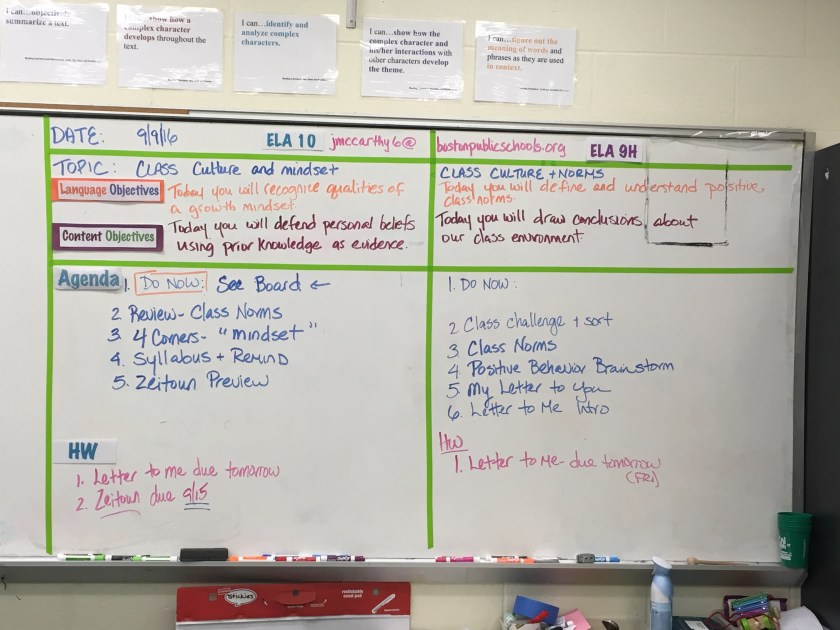 I can...objectively
summarize a text.
I can...show how a
complex character
develops throughout the
text.
I can...identify and
analyze complex
characters.
I can...show how the
complex character and
his/her interactions with
other characters develop
the theme.
I can...figure out the
meaning of words and
phrases as they are used
in context.
DATE: 9/9/16 ELA 10 jmccarthy6@ bostonpublicschools.org ELA 9H
TOPIC: CLASS Culture and mindset
Language Objectives
Today you will recognize qualities of
a growth mindset.
Content Objectives
Today you will defend personal beliefs
using prior knowledge as evidence.
Agenda 1. DO NOW: See Board ←
2. Review- Class Norms
3. 4 Corners- "mindset"
4. Syllabus + REMIND
5. Zeitoun Preview
HW
1. Letter to me due tomorrow
2. Zeitoun due 9/15
CLASS CULTURE + NORMS
Today you will define and understand positive
class norms.
Today you will draw conclusions about
our class environment.
1. DO NOW:
2 Class challenge + sort
3 Class Norms
4. Positive Behavior Brainstorm
5. My Letter to You
6. Letter to Me Intro
HW
1. Letter to Me due tomorrow
(FRI)